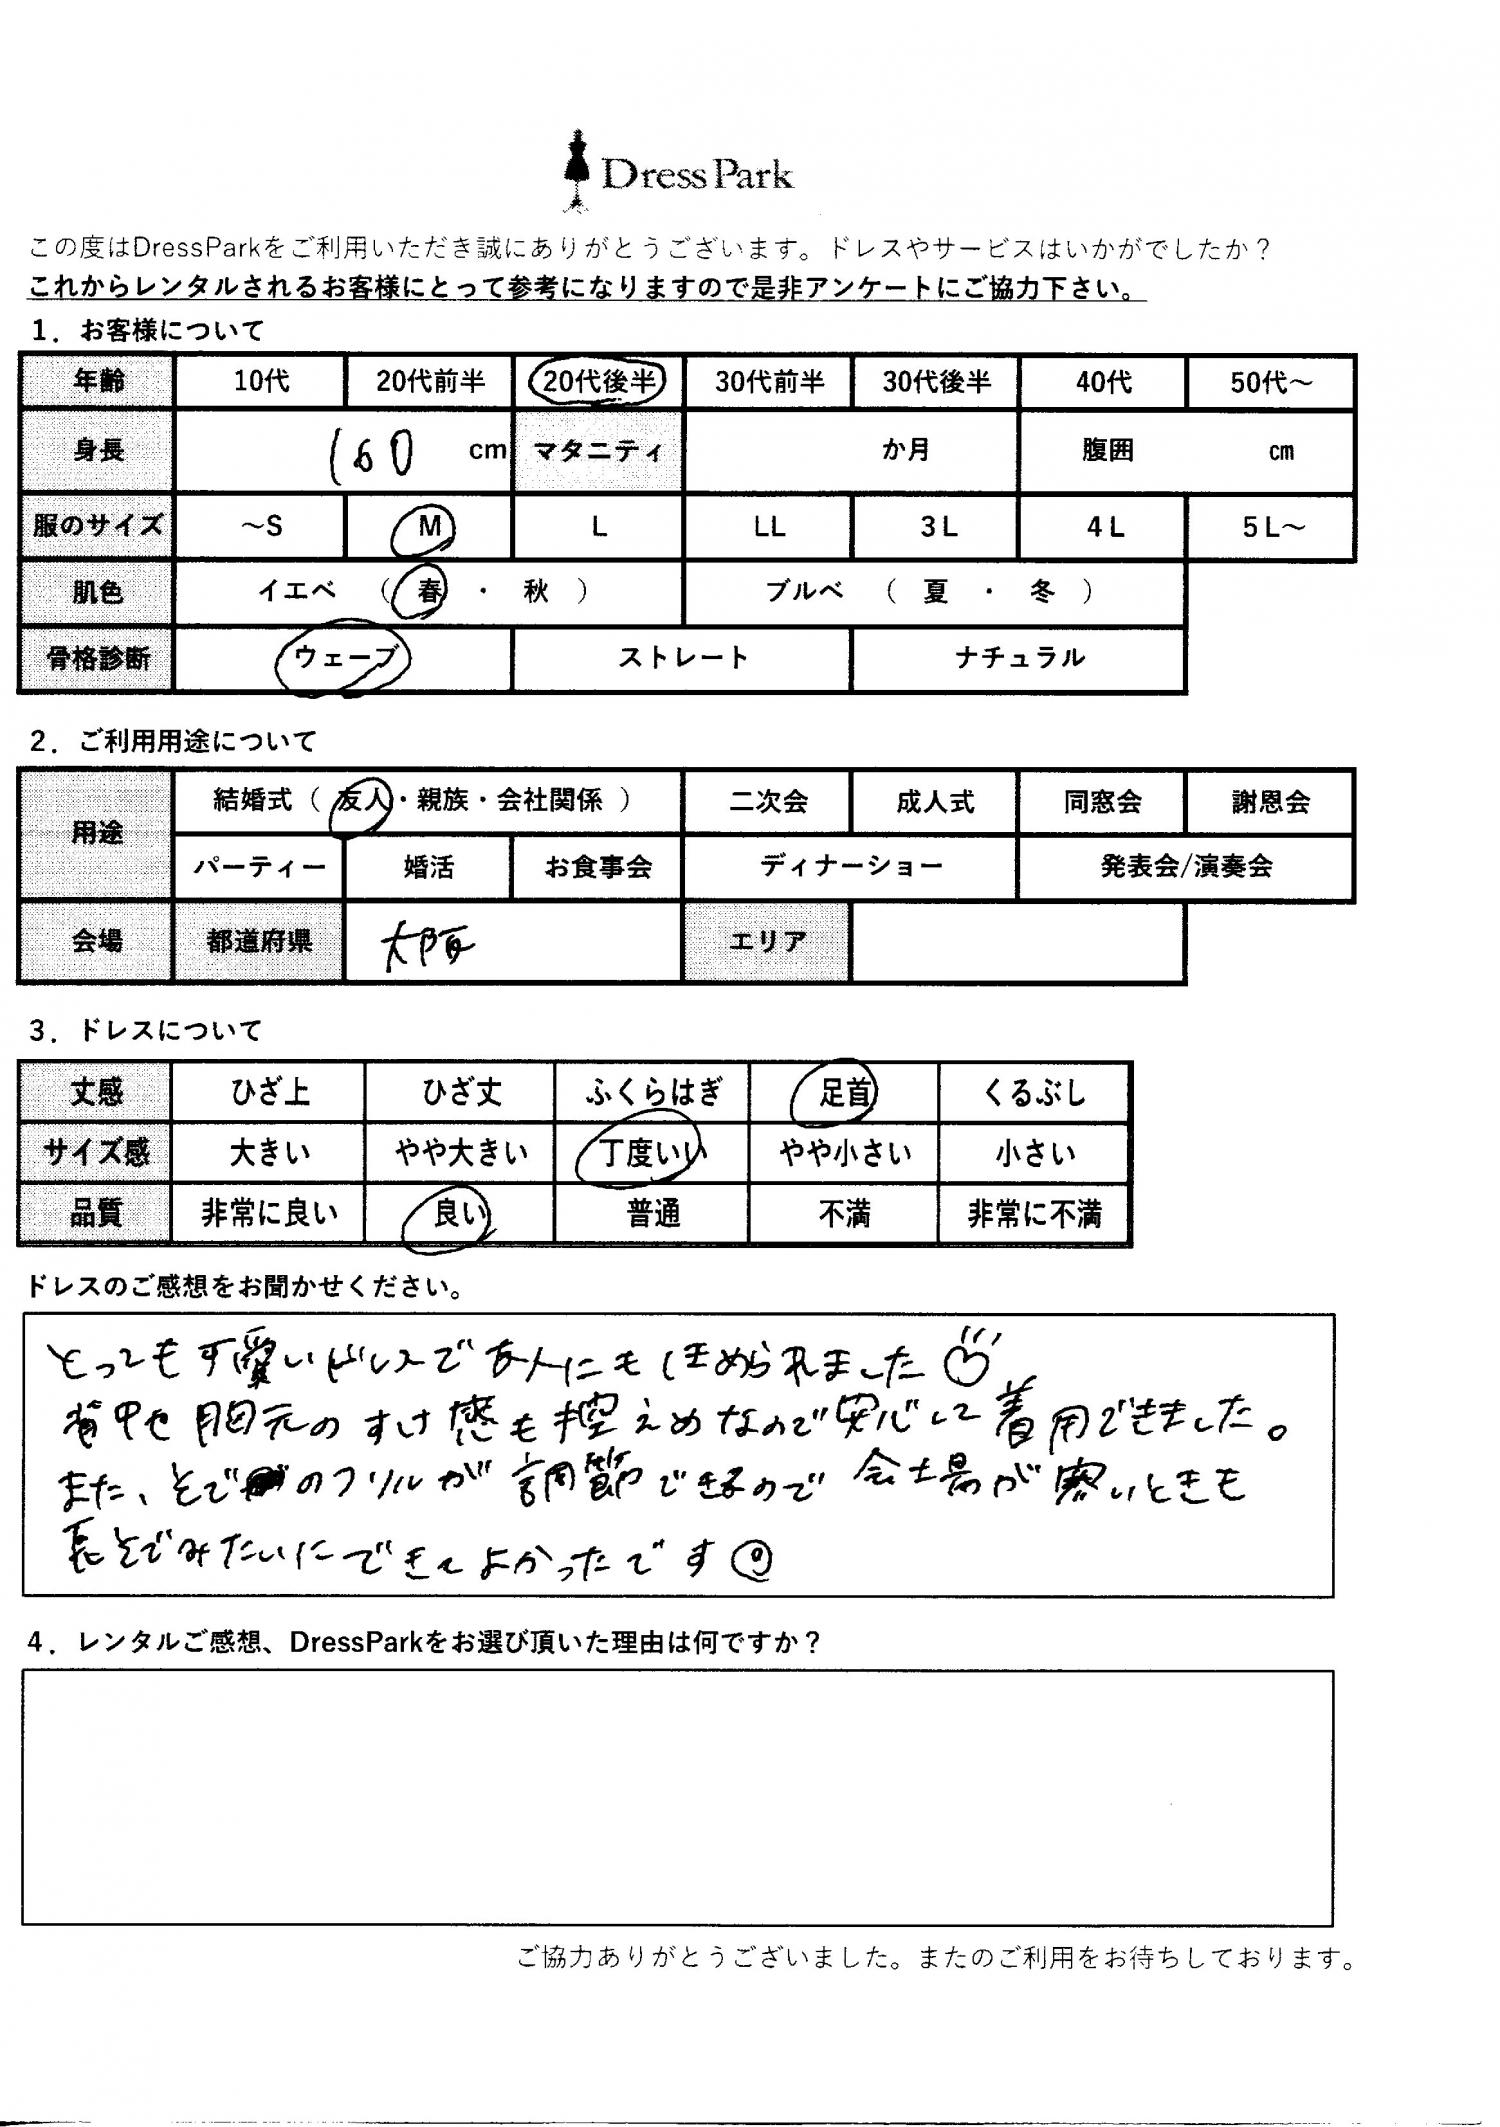 Dress Park
この度はDressParkをご利用いただき誠にありがとうございます。ドレスやサービスはいかがでしたか？
これからレンタルされるお客様にとって参考になりますので是非アンケートにご協力下さい。
1．お客様について
年齢 10代 20代前半 20代後半 30代前半 30代後半 40代 50代～
身長 160 cm マタニティ か月 腹囲 cm
服のサイズ ～S M L LL 3L 4L 5L～
肌色 イエベ （ 春 ・ 秋 ） ブルベ （ 夏 ・ 冬 ）
骨格診断 ウェーブ ストレート ナチュラル
2．ご利用用途について
用途 結婚式（ 友人・親族・会社関係 ） 二次会 成人式 同窓会 謝恩会
パーティー 婚活 お食事会 ディナーショー 発表会/演奏会
会場 都道府県 大阪 エリア
3．ドレスについて
丈感 ひざ上 ひざ丈 ふくらはぎ 足首 くるぶし
サイズ感 大きい やや大きい 丁度いい やや小さい 小さい
品質 非常に良い 良い 普通 不満 非常に不満
ドレスのご感想をお聞かせください。
とっても可愛いドレスで友人にもほめられました
背中や胸元のすけ感も控えめなので安心して着用できました。
また、そでのフリルが調節できるので会場が寒いときも
長そでみたいにできてよかったです
4．レンタルご感想、DressParkをお選び頂いた理由は何ですか？
ご協力ありがとうございました。またのご利用をお待ちしております。